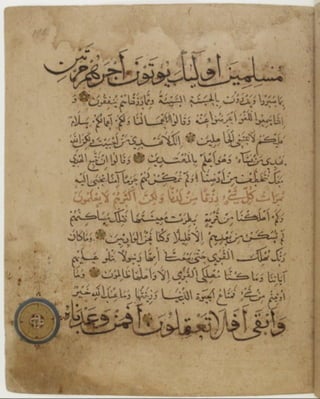 مسلمين أولئك يؤتون أجرهم مرتين
بما صبروا ويدرؤن بالحسنة السيئة ومما رزقناهم ينفقون و
إذا سمعوا اللغو أعرضوا عنه وقالوا لنا أعمالنا ولكم أعمالكم سلام
عليكم لا نبتغي الجاهلين إنك لا تهدي من أحببت ولكن الله
يهدي من يشاء وهو أعلم بالمهتدين وقالوا إن نتبع الهدى
معك نتخطف من أرضنا أولم نمكن لهم حرما آمنا يجبى إليه
ثمرات كل شيء رزقا من لدنا ولكن أكثرهم لا يعلمون
وكم أهلكنا من قرية بطرت معيشتها فتلك مساكنهم
لم تسكن من بعدهم إلا قليلا وكنا نحن الوارثين وما كان
ربك مهلك القرى حتى يبعث في أمها رسولا يتلو عليهم
آياتنا وما كنا مهلكي القرى إلا وأهلها ظالمون وما
أوتيتم من شيء فمتاع الحيوة الدنيا وزينتها وما عند الله خير
وأبقى أفلا تعقلون أفمن وعدناه